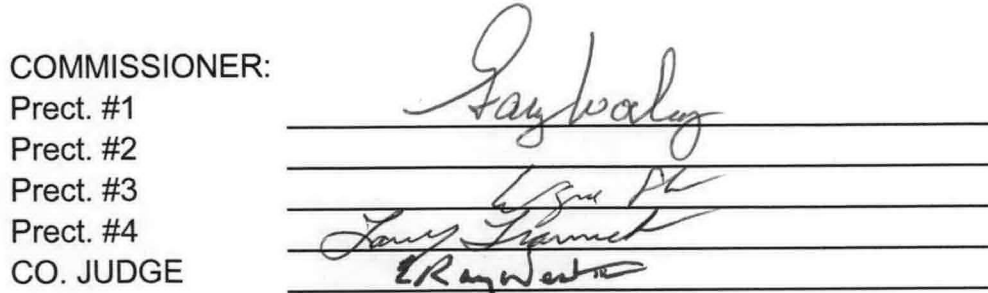 COMMISSIONER:
Prect. #1 Gary Worley
Prect. #2
Prect. #3
Prect. #4 Larry
CO. JUDGE Ray West